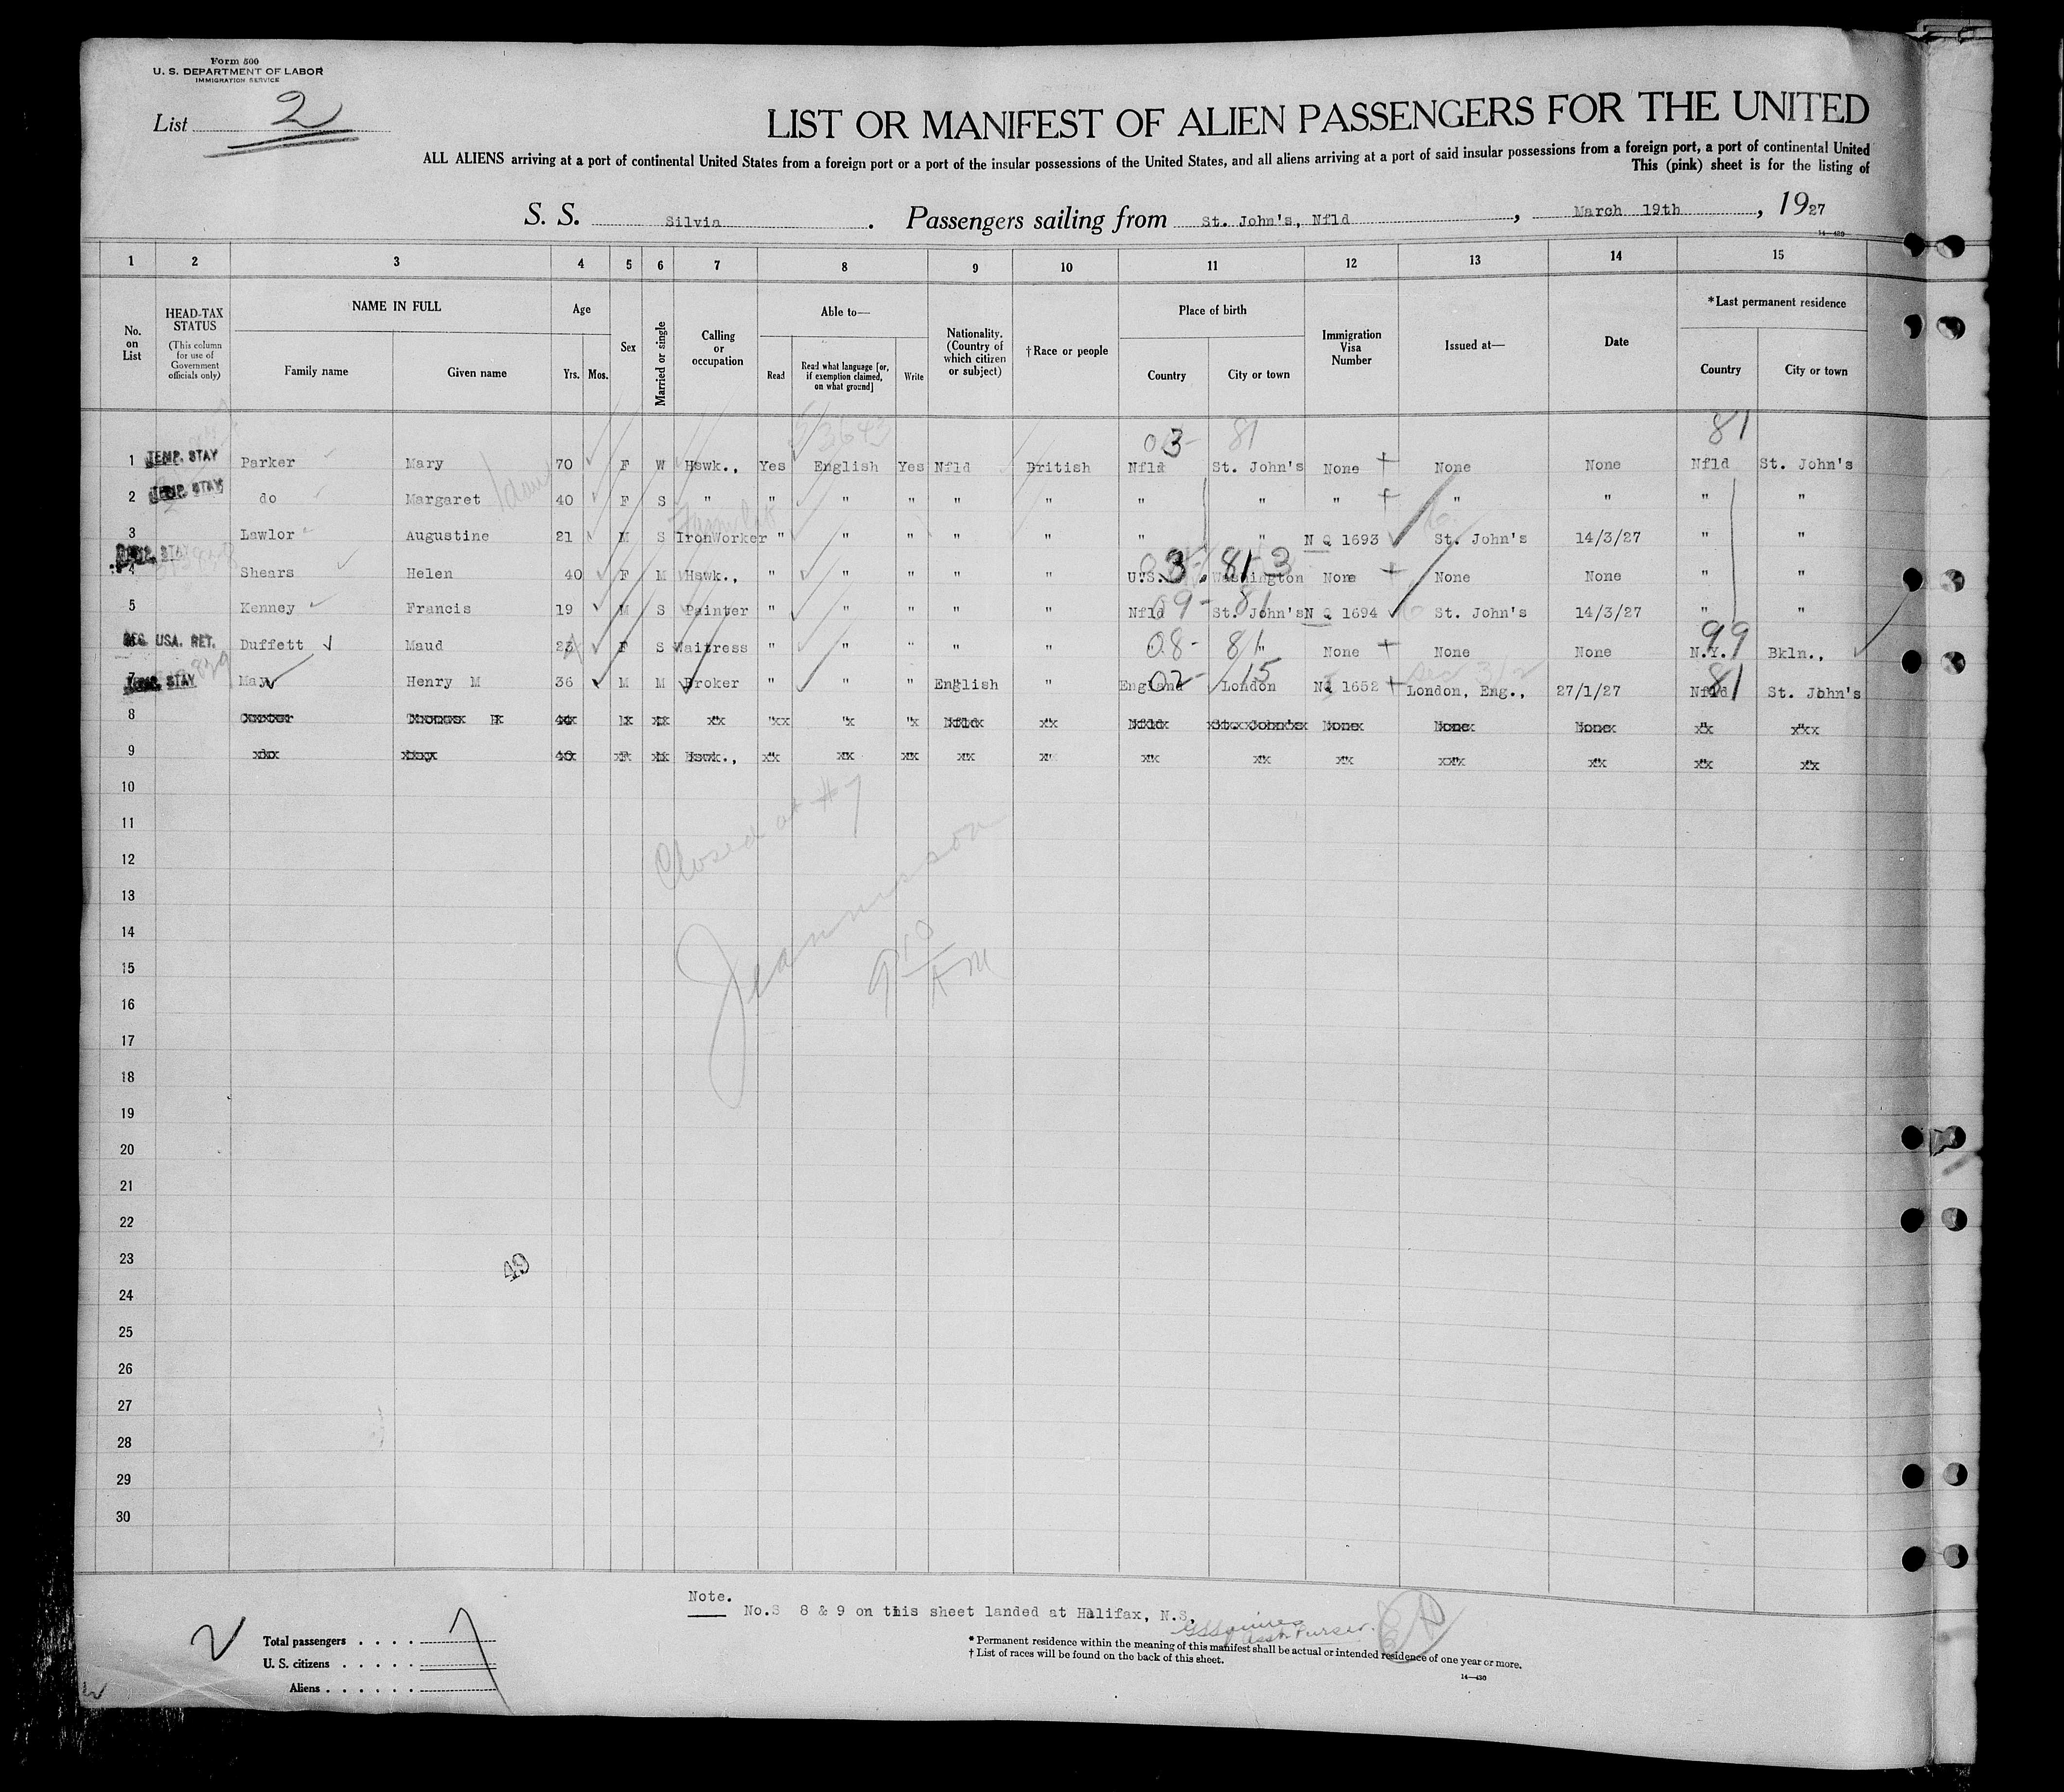 Form 500
U. S. DEPARTMENT OF LABOR
IMMIGRATION SERVICE
List 2
LIST OR MANIFEST OF ALIEN PASSENGERS FOR THE UNITED
ALL ALIENS arriving at a port of continental United States from a foreign port or a port of the insular possessions of the United States, and all aliens arriving at a port of said insular possessions from a foreign port, a port of continental United
This (pink) sheet is for the listing of
S. S. Silvia . Passengers sailing from St. John's, Nfld , March 19th , 1927
14—430
1 2 3 4 5 6 7 8 9 10 11 12 13 14 15
No. on List
HEAD-TAX STATUS
(This column for use of Government officials only)
NAME IN FULL
Family name
Given name
Age
Yrs. Mos.
Sex
Married or single
Calling or occupation
Able to—
Read
Read what language [or, if exemption claimed, on what ground]
Write
Nationality. (Country of which citizen or subject)
†Race or people
Place of birth
Country
City or town
Immigration Visa Number
Issued at—
Date
*Last permanent residence
Country
City or town
03- 81 81
1 TEMP. STAY Parker Mary 70 F W Hswk., Yes English Yes Nfld British Nfld St. John's None None None Nfld St. John's
2 TEMP. STAY do Margaret 40 F S " " " " " " " " " " " " "
3 Lawlor Augustine 21 M S IronWorker " " " " " " " N Q 1693 St. John's 14/3/27 " "
TEMP. STAY
4 Shears Helen 40 F M Hswk., " " " " " U.S. Washington None None None " "
3 81 3
5 Kenney Francis 19 M S Painter " " " " " Nfld St. John's N Q 1694 St. John's 14/3/27 " "
09- 81
USA. RET. Duffett Maud 23 F S Waitress " " " " " " None None None N.Y. Bkln.,
08- 81 99
7 TEMP. STAY May Henry M 36 M M Broker " " " English " England London NQ 1652 London, Eng., 27/1/27 Nfld St. John's
02- 15 81
8 Nfld Nfld St. John's None None None
9 do 40 F M Hswk.,
10
11
12
13
14
15
16
17
18
19
20
21
22
23
24
25
26
27
28
29
30
Closed at #7
9 10 AM
49
Note.
No.S 8 & 9 on this sheet landed at Halifax, N.S.
Asst. Purser.
Total passengers . . . . 7
U. S. citizens . . . . .
Aliens . . . . . .
* Permanent residence within the meaning of this manifest shall be actual or intended residence of one year or more.
† List of races will be found on the back of this sheet.
14—430